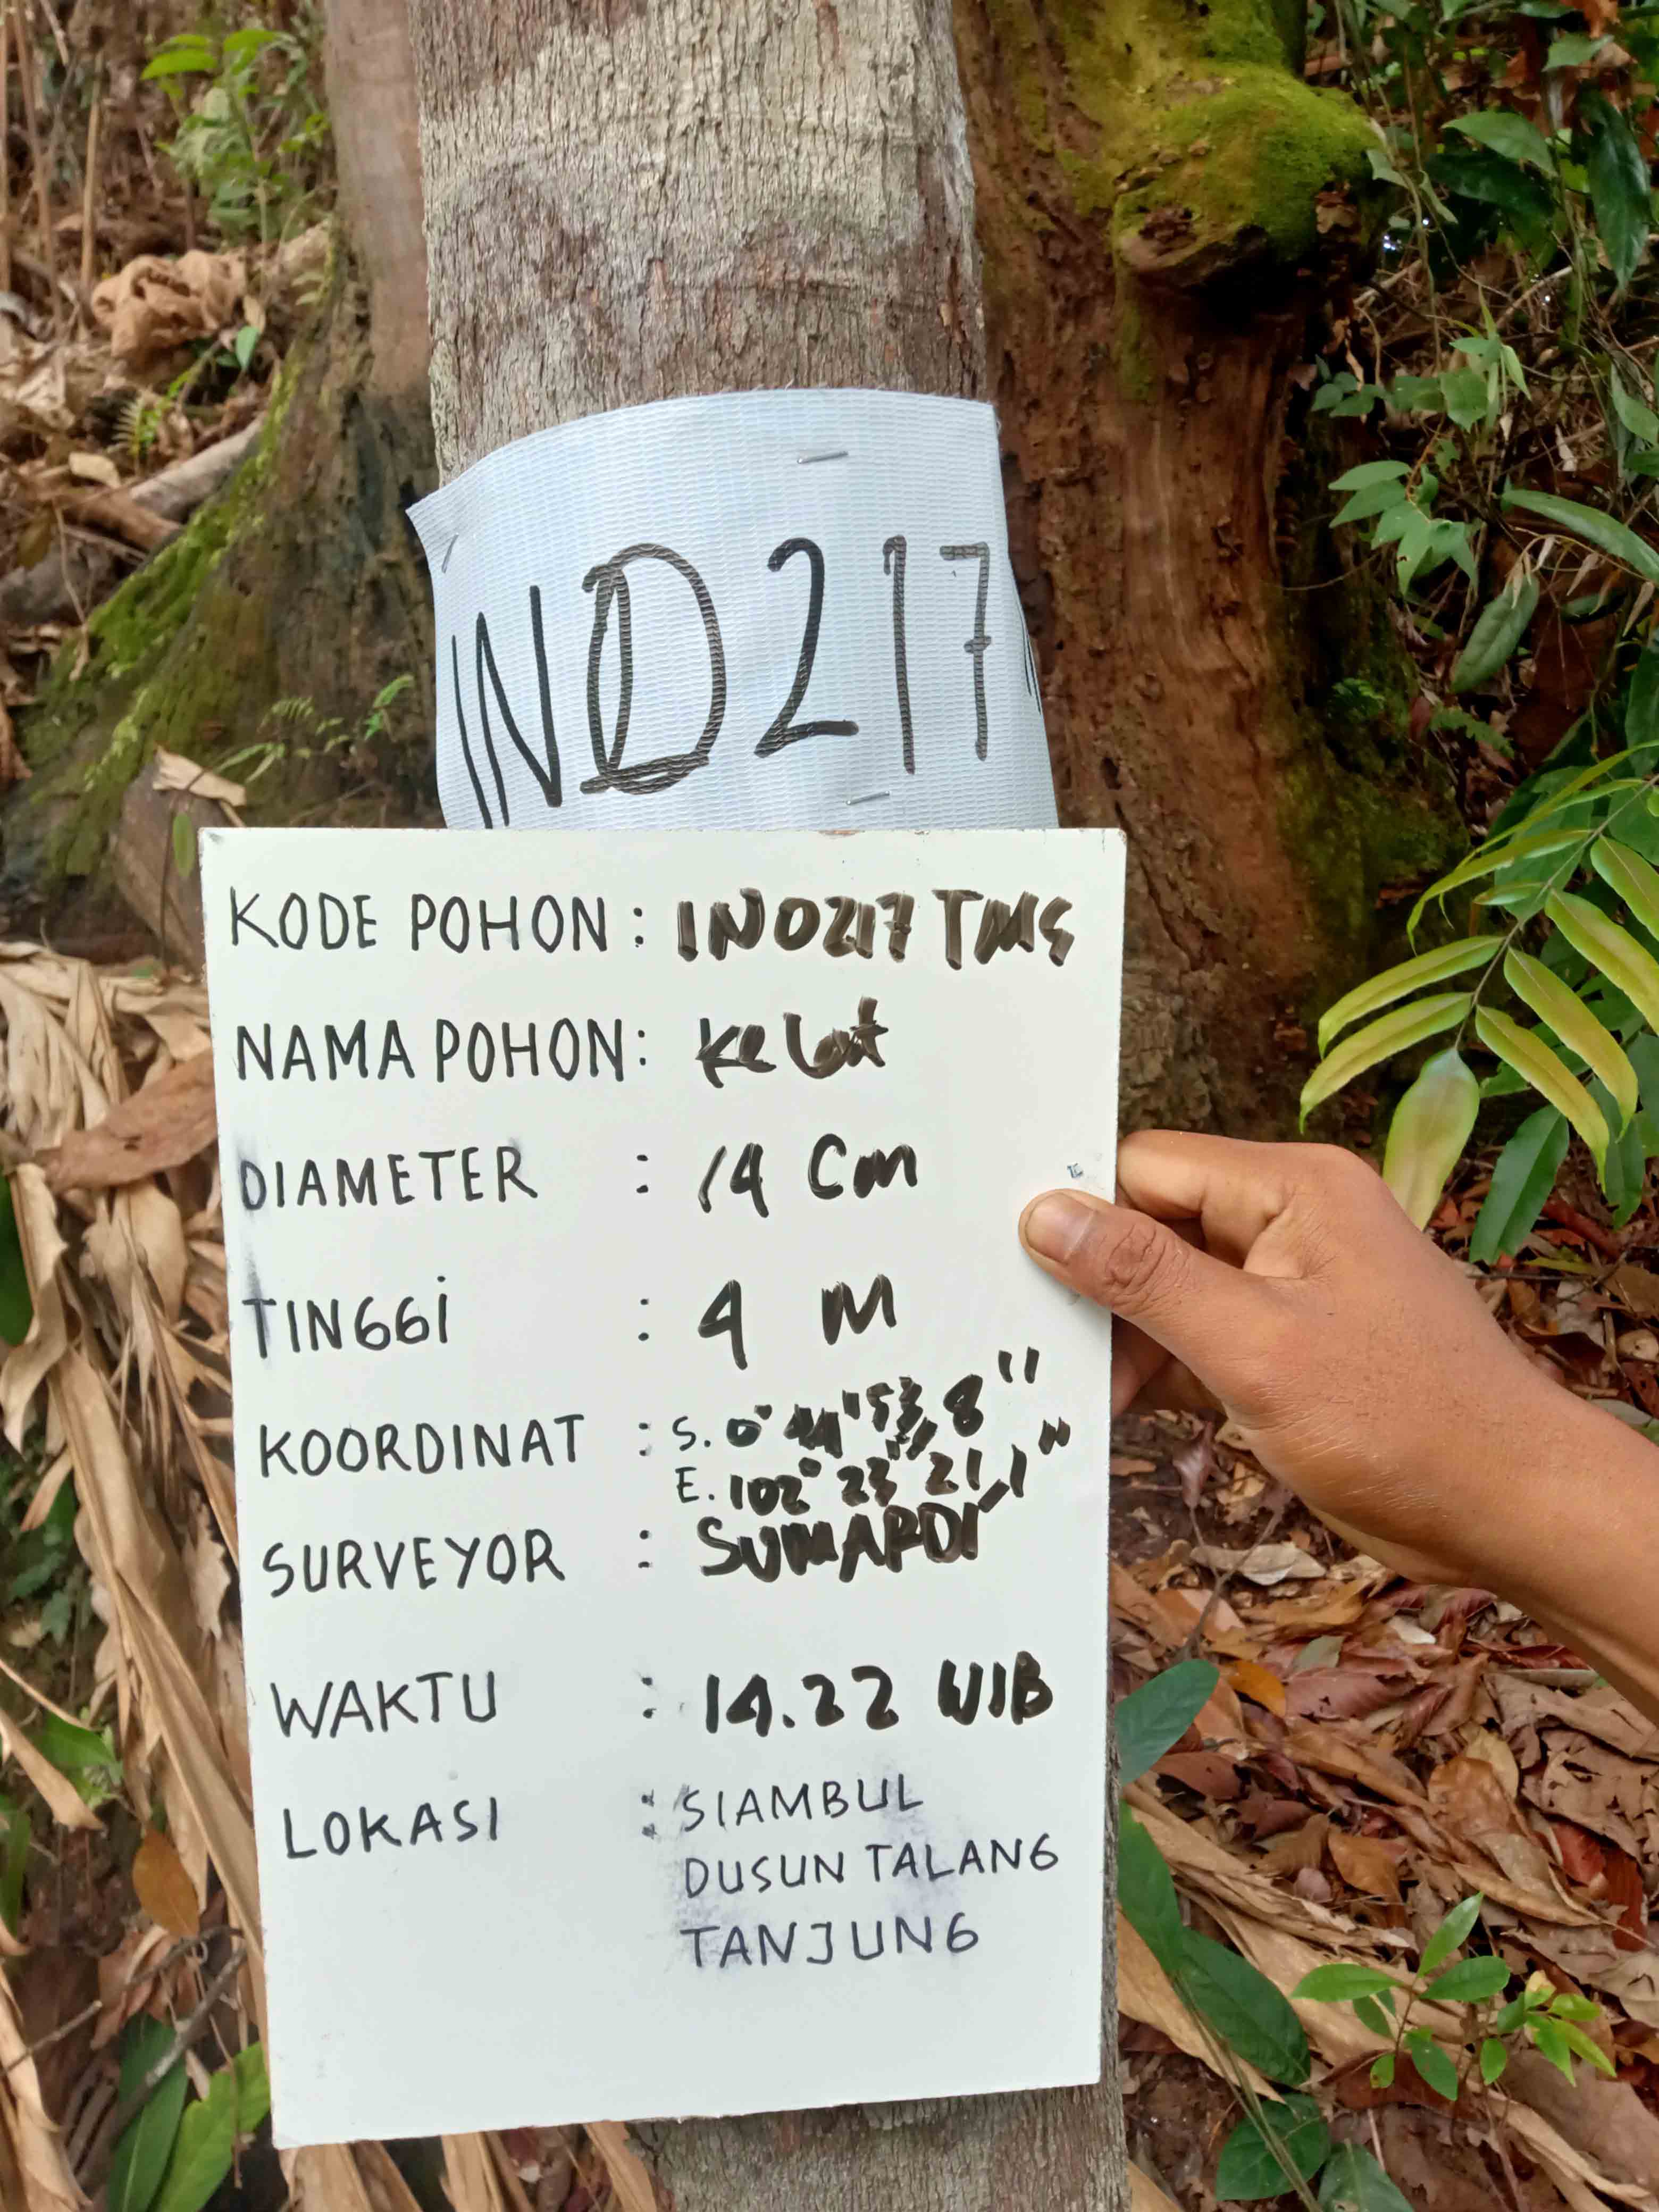 IND217
KODE POHON : IND217 TMS
NAMA POHON : Kelat
DIAMETER : 14 Cm
TINGGI : 4 M
KOORDINAT : S. 0° 44' 53,8"
E. 102° 23' 21,1"
SURVEYOR : SUMARDI
WAKTU : 14.22 WIB
LOKASI : SIAMBUL
DUSUN TALANG
TANJUNG